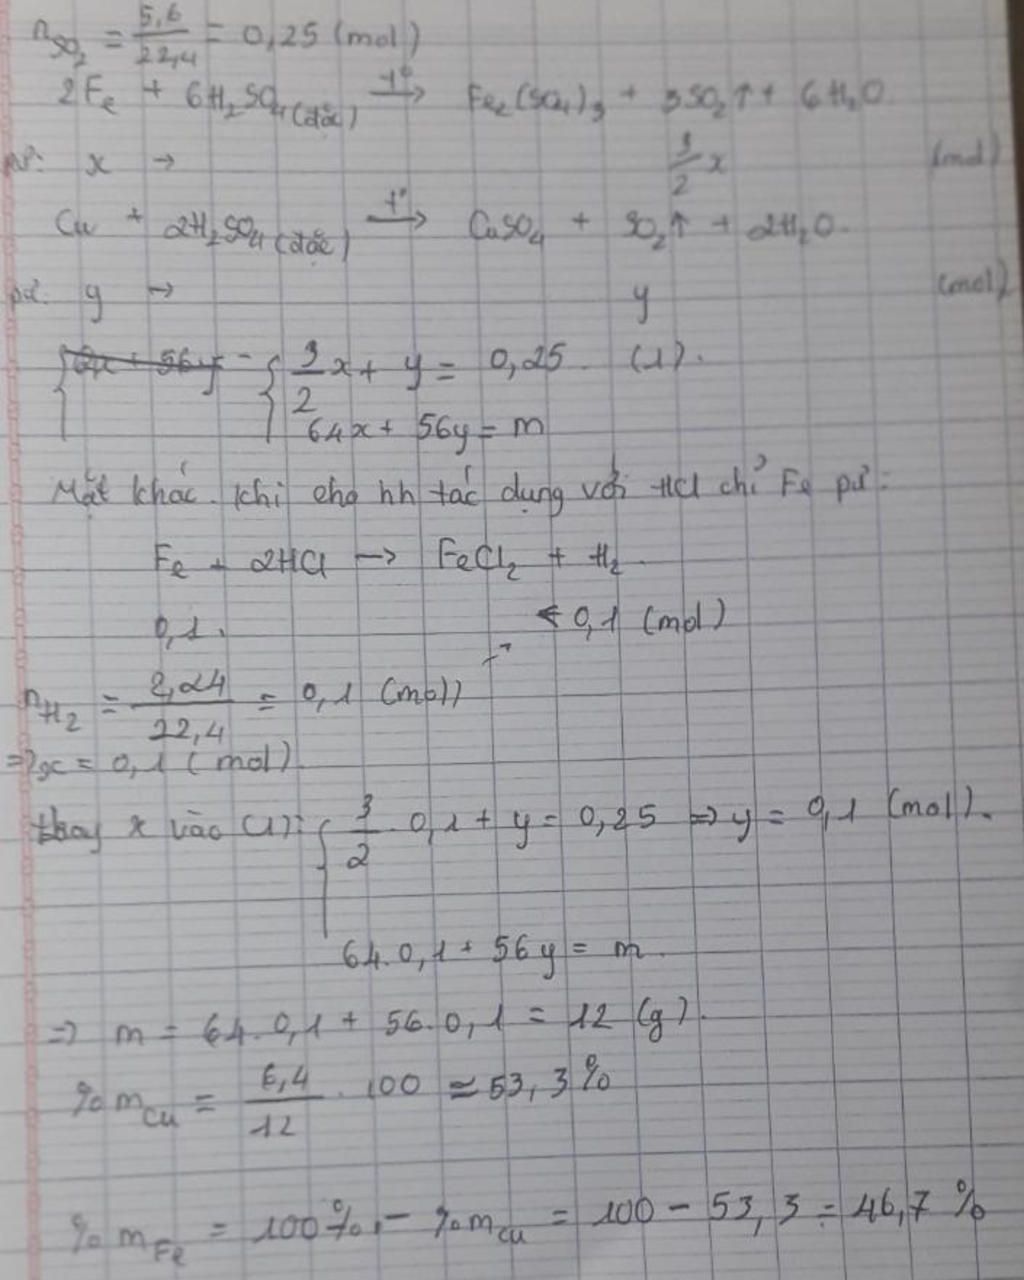 nSO₂ = 5,6/22,4 = 0,25 (mol)
2Fe + 6H₂SO₄(đặc) →t° Fe₂(SO₄)₃ + 3SO₂↑ + 6H₂O
pứ: x → 3/2 x (mol)
Cu + 2H₂SO₄(đặc) →t° CuSO₄ + SO₂↑ + 2H₂O.
pứ: y → y (mol)
{ 3/2 x + y = 0,25 (1).
64x + 56y = m
Mặt khác. Khi cho hh tác dụng với HCl chỉ Fe pứ:
Fe + 2HCl → FeCl₂ + H₂
0,1. ← 0,1 (mol)
nH₂ = 2,24/22,4 = 0,1 (mol)
=> x = 0,1 (mol)
thay x vào (1): { 3/2 . 0,1 + y = 0,25 => y = 0,1 (mol).
64.0,1 + 56y = m.
=> m = 64.0,1 + 56.0,1 = 12 (g).
%mCu = 6,4/12 . 100 ≃ 53,3%
%mFe = 100% - %mCu = 100 - 53,3 = 46,7%